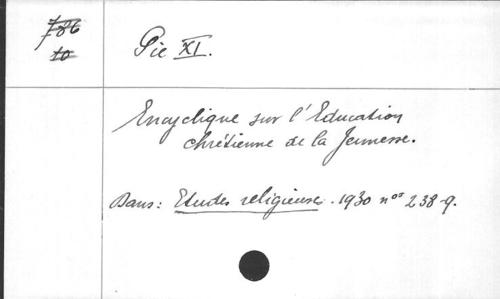 786
10
Pie XI.
Encyclique sur l'Education
chrétienne de la Jeunesse.
Dans: Etudes religieuses. 1930 nos 238-9.